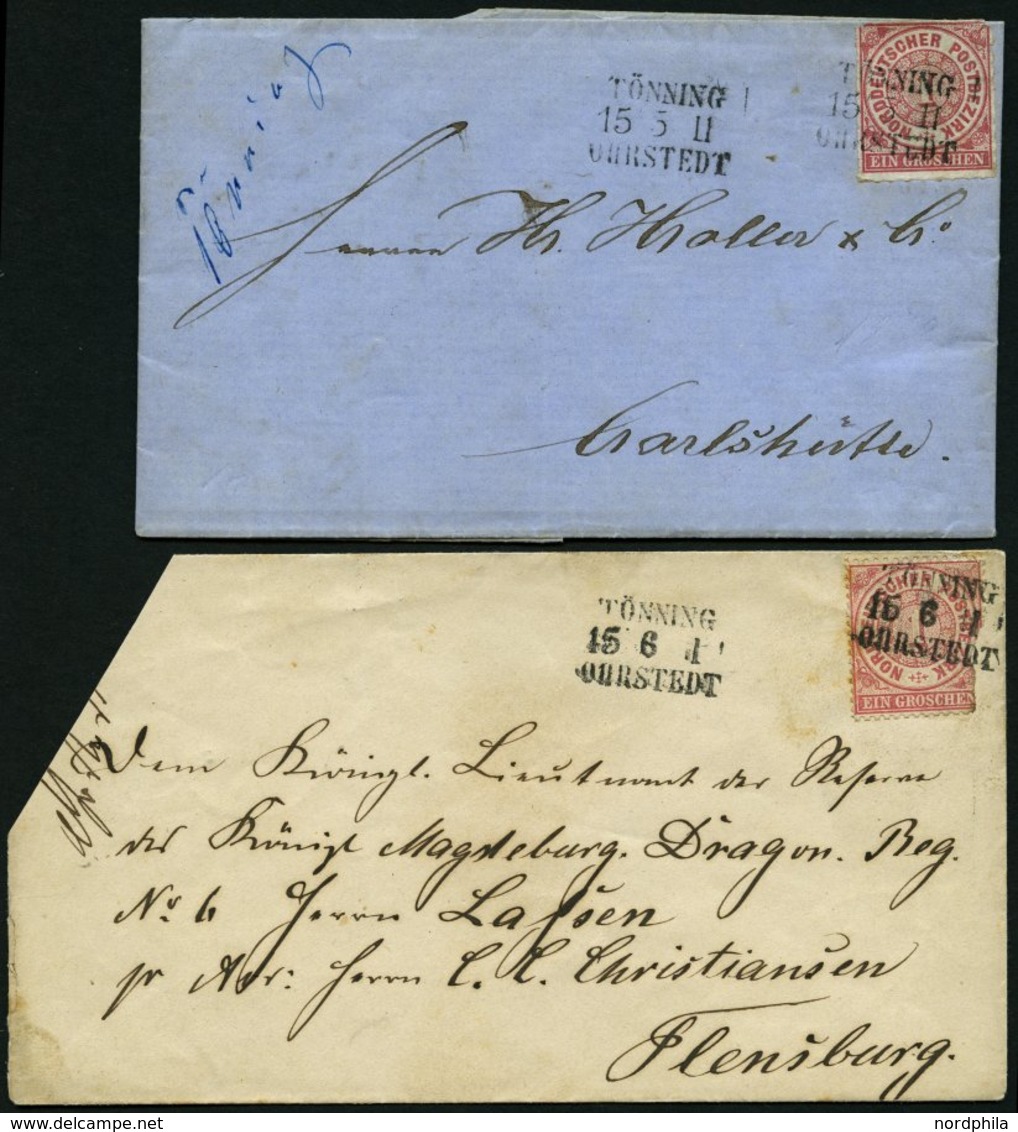 Tönning
TÖNNING
15 5 II
OHRSTEDT
TÖNNING
15 5 II
OHRSTEDT
NORDDEUTSCHER POSTBEZIRK
EIN GROSCHEN
Herren Th. Holler & Co.
Carlshütte.
TÖNNING
15 6 I
OHRSTEDT
TÖNNING
15 6 I
OHRSTEDT
NORDDEUTSCHER POSTBEZIRK
EIN GROSCHEN
Dem Königl. Lieutnant der Reserve
des Königl Magdeburg. Dragon. Reg.
No 6 Herrn Lassen
pr Adr: Herrn C. C. Christiansen
Flensburg.
www.delcampe.net
nordphila